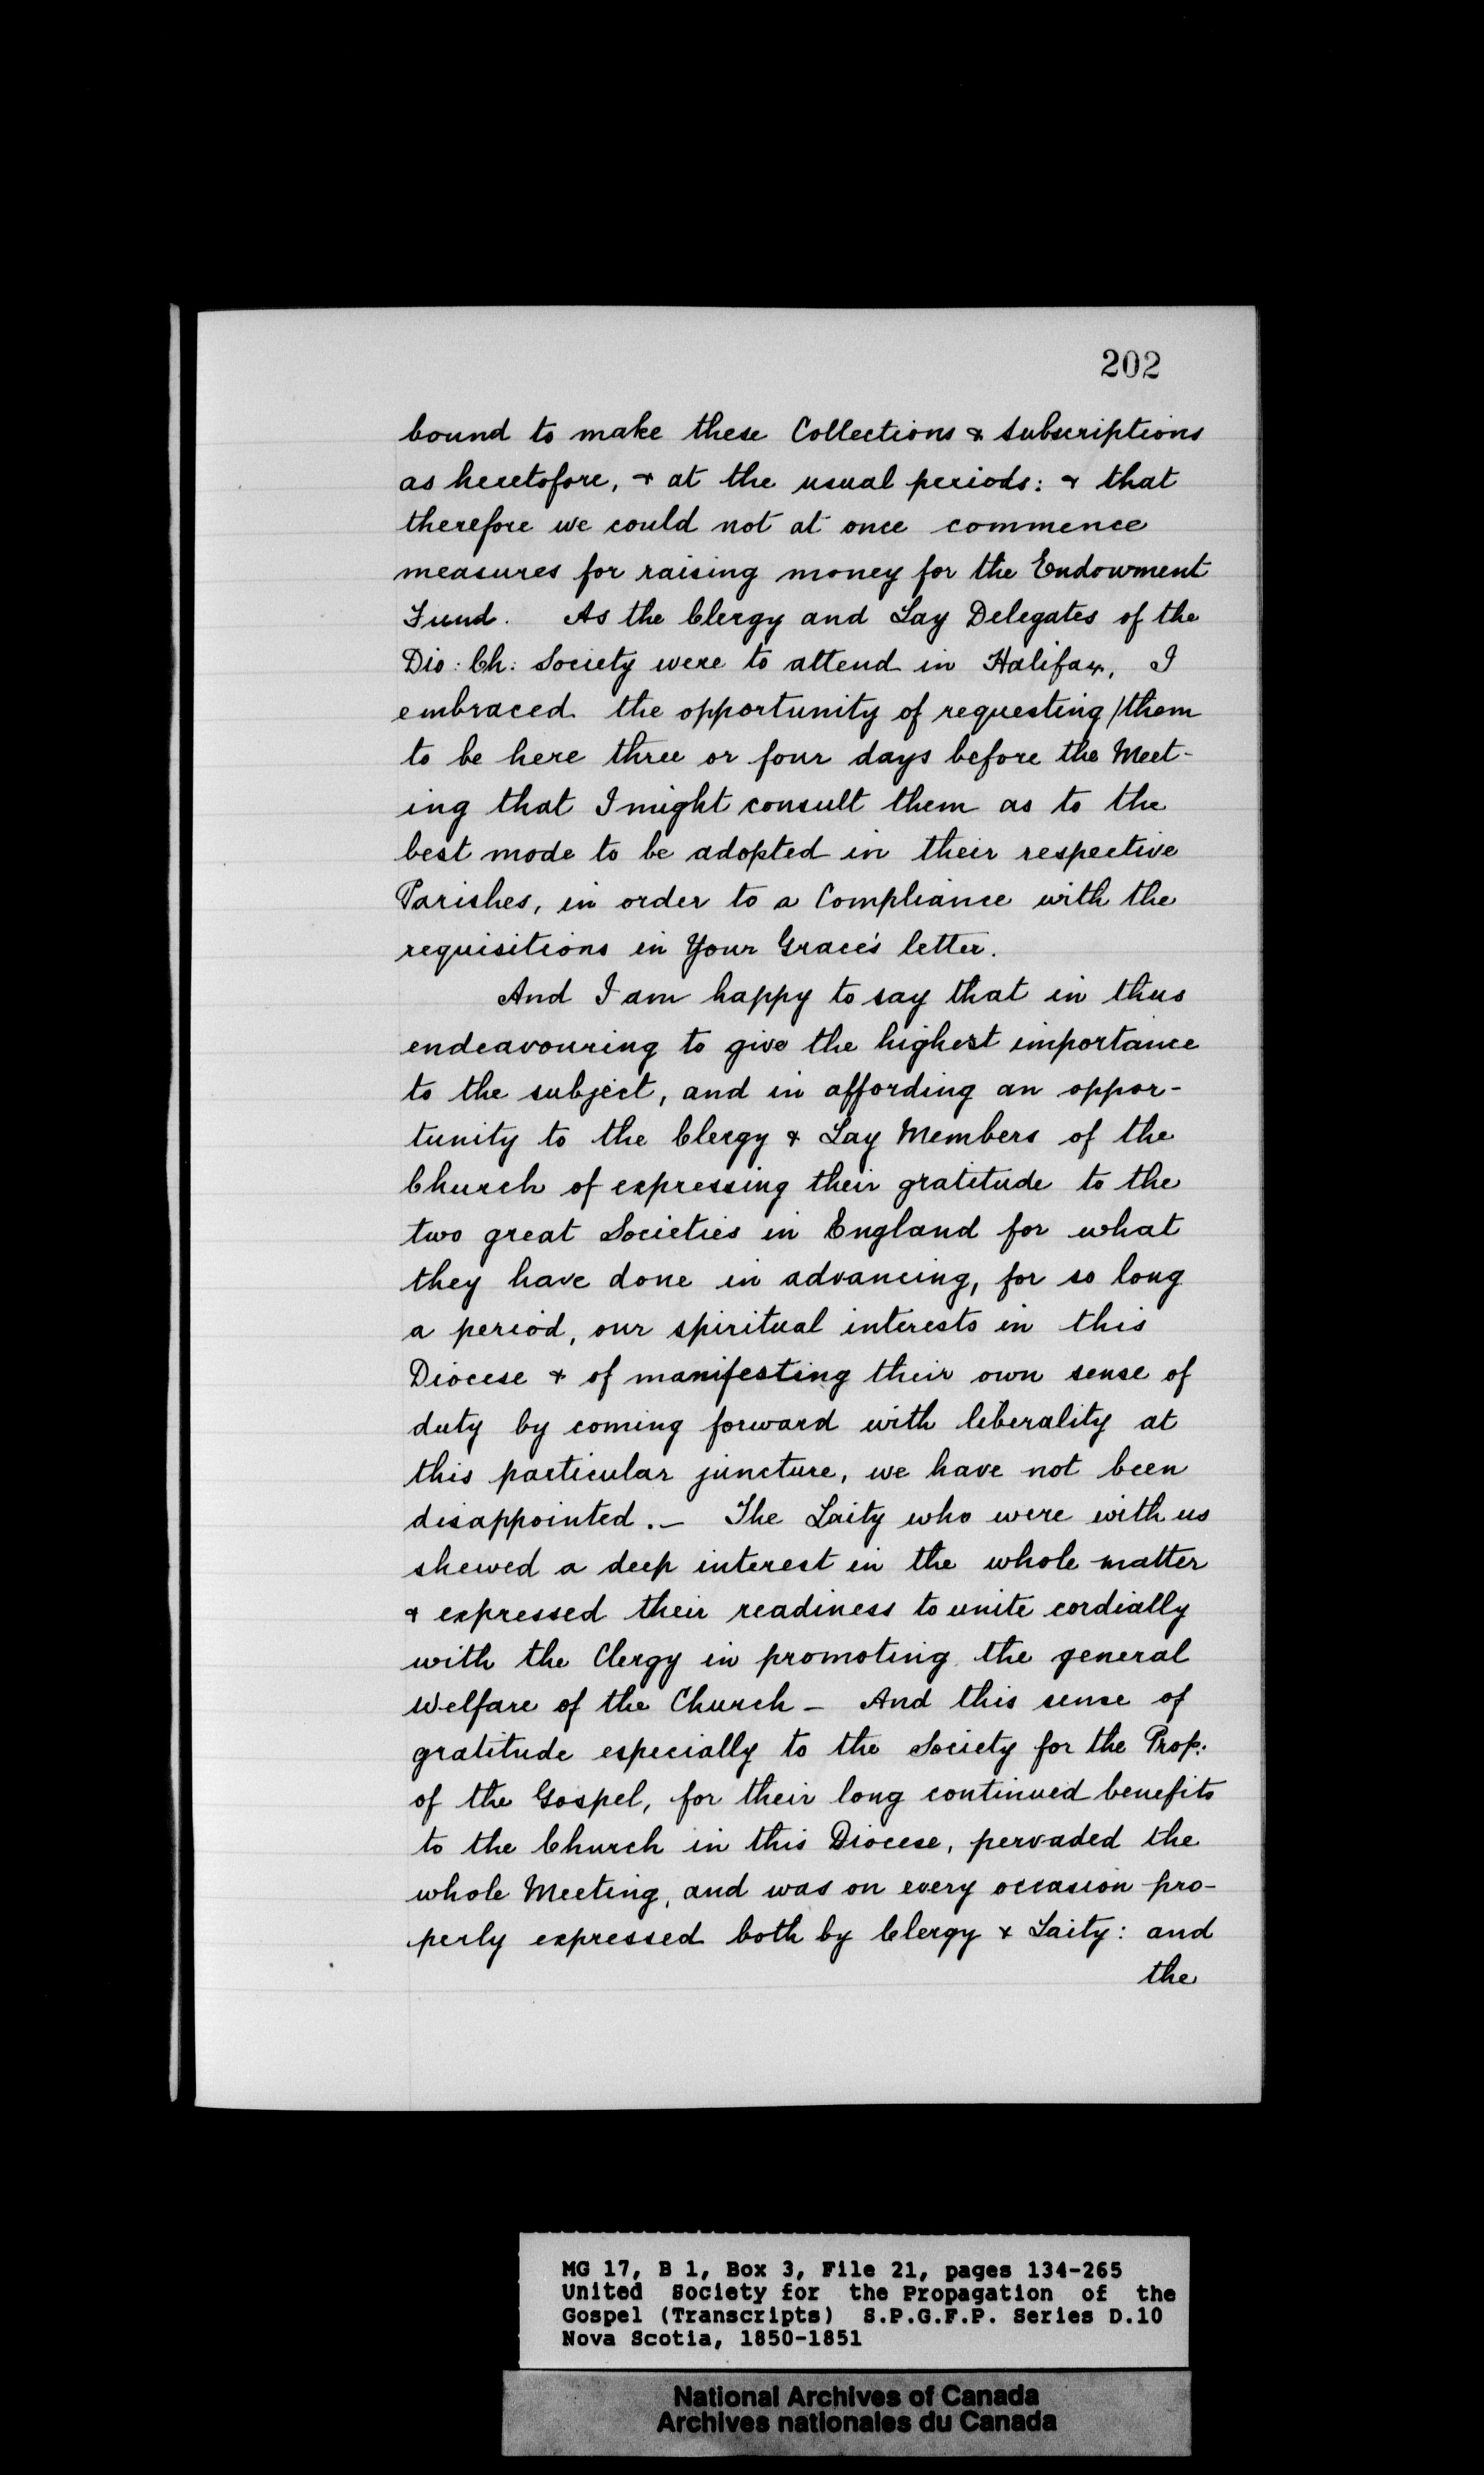 202
bound to make these Collections & subscriptions
as heretofore, & at the usual periods: & that
therefore we could not at once commence
measures for raising money for the Endowment
Fund. As the Clergy and Lay Delegates of the
Dio: Ch: Society were to attend in Halifax, I
embraced the opportunity of requesting /them
to be here three or four days before the Meet-
ing that I might consult them as to the
best mode to be adopted in their respective
Parishes, in order to a Compliance with the
requisitions in Your Grace's letter.
And I am happy to say that in thus
endeavouring to give the highest importance
to the subject, and in affording an oppor-
tunity to the Clergy & Lay Members of the
Church of expressing their gratitude to the
two great Societies in England for what
they have done in advancing, for so long
a period, our spiritual interests in this
Diocese & of manifesting their own sense of
duty by coming forward with liberality at
this particular juncture, we have not been
disappointed. – The Laity who were with us
shewed a deep interest in the whole matter
& expressed their readiness to unite cordially
with the Clergy in promoting the general
Welfare of the Church – And this sense of
gratitude especially to the Society for the Prop:
of the Gospel, for their long continued benefits
to the Church in this Diocese, pervaded the
whole Meeting, and was on every occasion pro-
perly expressed both by Clergy & Laity: and
the
MG 17, B 1, Box 3, File 21, pages 134-265
United Society for the Propagation of the
Gospel (Transcripts) S.P.G.F.P. Series D.10
Nova Scotia, 1850-1851
National Archives of Canada
Archives nationales du Canada